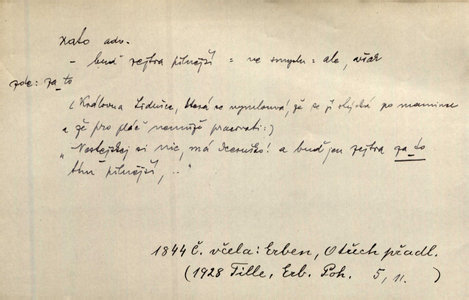 zato adv.
- buď zejtra pilnější = ve smyslu = ale, však
zde: za to
(Královna Lidušce, která se vymlouvá, že se jí stýská po mamince
a že pro pláč nemůže pracovati:)
"Nestejskej si nic, má dceruško! a buď jen zejtra za to
tím pilnější, .."
1844 Č. včela: Erben, O třech přadl.
(1928 Tille, Erb. Poh. 5, n.